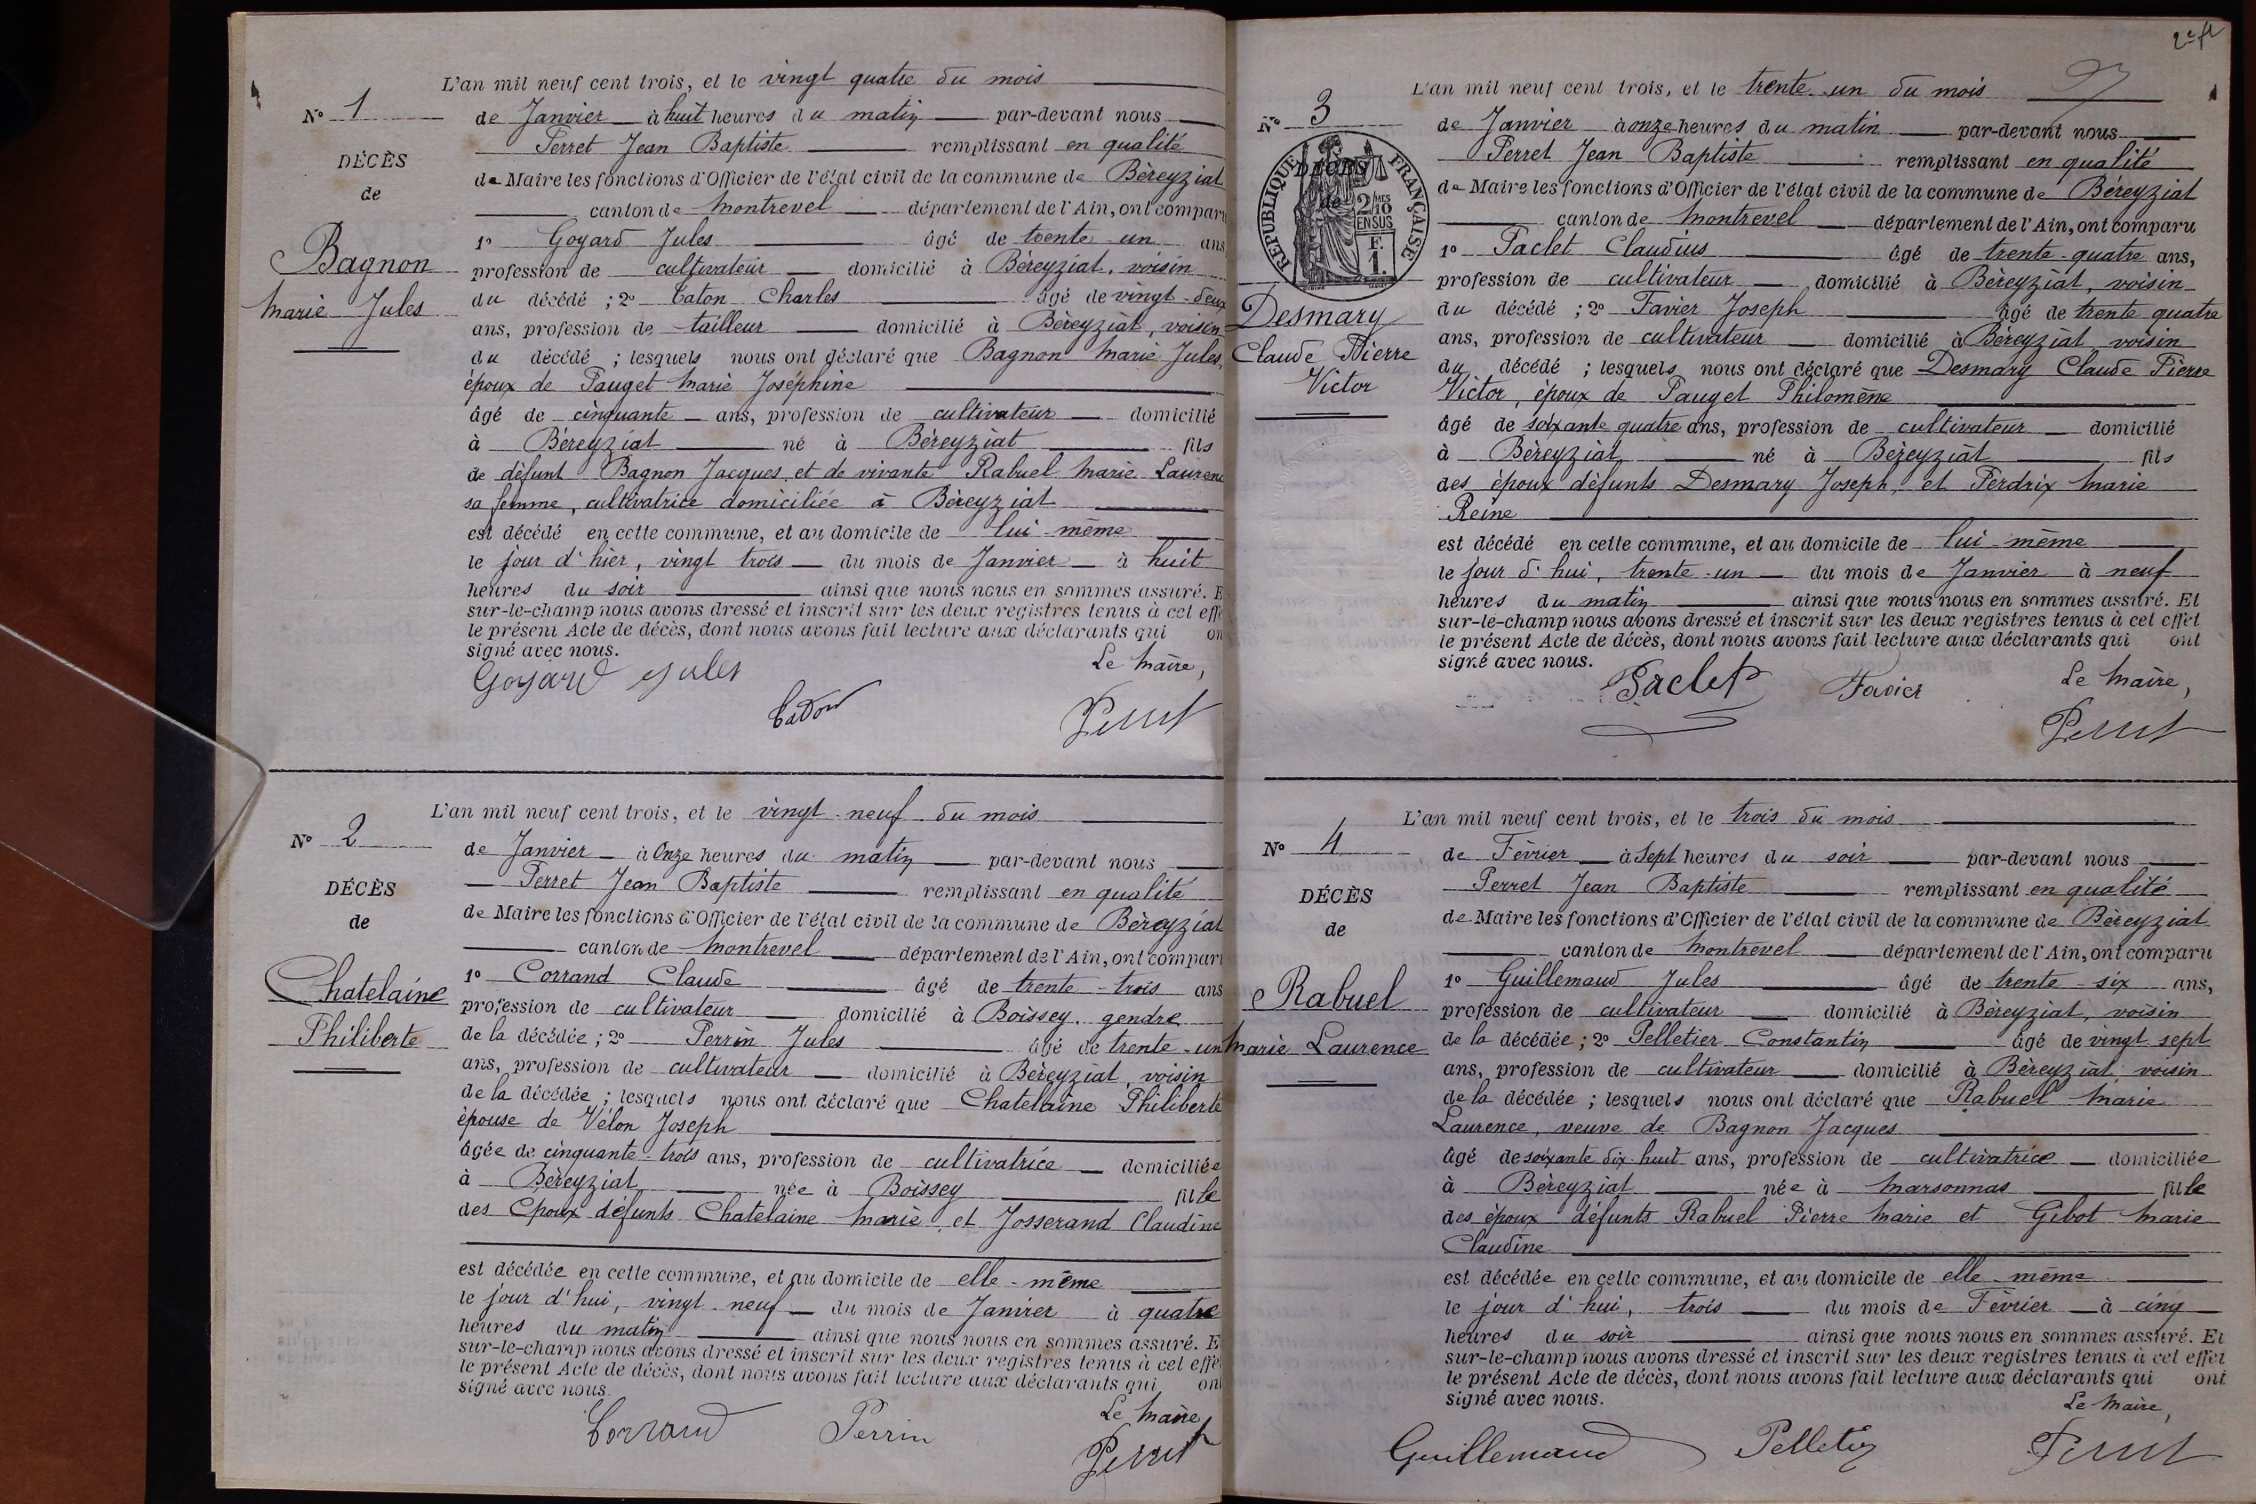 L'an mil neuf cent trois, et le vingt quatre du mois
N° 1
de Janvier à huit heures du matin par-devant nous
Perret Jean Baptiste remplissant en qualité
DÉCÈS
de Maire les fonctions d'Officier de l'état civil de la commune de Béreyziat
de
canton de Montrevel département de l'Ain, ont compar
1° Goyard Jules âgé de trente un ans
Bagnon
profession de cultivateur domicilié à Béreyziat, voisin
Marie Jules
du décédé ; 2° Caton Charles âgé de vingt-deux
ans, profession de tailleur domicilié à Béreyziat, voisin
du décédé ; lesquels nous ont déclaré que Bagnon Marie Jules,
époux de Pauget Marie Joséphine
âgé de cinquante ans, profession de cultivateur domicilié
à Béreyziat né à Béreyziat fils
de défunt Bagnon Jacques et de vivante Rabuel Marie Laurenc
sa femme, cultivatrice domiciliée à Béreyziat
est décédé en cette commune, et au domicile de lui-même
le jour d'hier, vingt trois du mois de Janvier à huit
heures du soir ainsi que nous nous en sommes assuré. E
sur-le-champ nous avons dressé et inscrit sur les deux registres tenus à cet effe
le présent Acte de décès, dont nous avons fait lecture aux déclarants qui on
signé avec nous.
Le Maire,
Goyard Jules
Caton
Perret
L'an mil neuf cent trois, et le vingt-neuf du mois
N° 2
de Janvier à Onze heures du matin par-devant nous
Perret Jean Baptiste remplissant en qualité
DÉCÈS
de Maire les fonctions d'Officier de l'état civil de la commune de Béreyziat
de
canton de Montrevel département de l'Ain, ont compar
1° Corrand Claude âgé de trente-trois ans
Chatelaine
profession de cultivateur domicilié à Boissey, gendre
Philiberte
de la décédée ; 2° Perrin Jules âgé de trente-un
ans, profession de cultivateur domicilié à Béreyziat, voisin
de la décédée ; lesquels nous ont déclaré que Chatelaine Philiberte
épouse de Vélon Joseph
âgée de cinquante-trois ans, profession de cultivatrice domiciliée
à Béreyziat née à Boissey fille
des Epoux défunts Chatelaine Marie et Josserand Claudine
est décédée en cette commune, et au domicile de elle-même
le jour d'hui, vingt-neuf du mois de Janvier à quatre
heures du matin ainsi que nous nous en sommes assuré. E
sur-le-champ nous avons dressé et inscrit sur les deux registres tenus à cet effe
le présent Acte de décès, dont nous avons fait lecture aux déclarants qui on
signé avec nous.
Le Maire
Corrand
Perrin
Perret
2e ft
L'an mil neuf cent trois, et le trente-un du mois
N° 3
de Janvier à onze heures du matin par-devant nous
Perret Jean Baptiste remplissant en qualité
RÉPUBLIQUE FRANÇAISE
DÉCÈS
de
2/10 MES EN SUS
F. 1.
de Maire les fonctions d'Officier de l'état civil de la commune de Béreyziat
canton de Montrevel département de l'Ain, ont comparu
1° Paclet Claudius âgé de trente-quatre ans,
profession de cultivateur domicilié à Béreyziat, voisin
Desmary
Claude Pierre
Victor
du décédé ; 2° Favier Joseph âgé de trente-quatre
ans, profession de cultivateur domicilié à Béreyziat, voisin
du décédé ; lesquels nous ont déclaré que Desmary Claude Pierre
Victor, époux de Pauget Philomène
âgé de soixante quatre ans, profession de cultivateur domicilié
à Béreyziat né à Béreyziat fils
des époux défunts Desmary Joseph, et Perdrix Marie
Reine
est décédé en cette commune, et au domicile de lui-même
le jour d'hui, trente-un du mois de Janvier à neuf
heures du matin ainsi que nous nous en sommes assuré. Et
sur-le-champ nous avons dressé et inscrit sur les deux registres tenus à cet effet
le présent Acte de décès, dont nous avons fait lecture aux déclarants qui ont
signé avec nous.
Le Maire,
Paclet
Favier
Perret
L'an mil neuf cent trois, et le trois du mois
N° 4
de Février à Sept heures du soir par-devant nous
Perret Jean Baptiste remplissant en qualité
DÉCÈS
de Maire les fonctions d'Officier de l'état civil de la commune de Béreyziat
de
canton de Montrevel département de l'Ain, ont comparu
1° Guillemaud Jules âgé de trente-six ans,
Rabuel
profession de cultivateur domicilié à Béreyziat, voisin
Marie Laurence
de la décédée ; 2° Pelletier Constantin âgé de vingt sept
ans, profession de cultivateur domicilié à Béreyziat, voisin
de la décédée ; lesquels nous ont déclaré que Rabuel Marie
Laurence, veuve de Bagnon Jacques
âgé de soixante dix-huit ans, profession de cultivatrice domiciliée
à Béreyziat née à Marsonnas fille
des époux défunts Rabuel Pierre Marie et Gibot Marie
Claudine
est décédée en cette commune, et au domicile de elle-même
le jour d'hui, trois du mois de Février à cinq
heures du soir ainsi que nous nous en sommes assuré. Et
sur-le-champ nous avons dressé et inscrit sur les deux registres tenus à cet effet
le présent Acte de décès, dont nous avons fait lecture aux déclarants qui ont
signé avec nous.
Le Maire,
Guillemaud
Pelletier
Perret